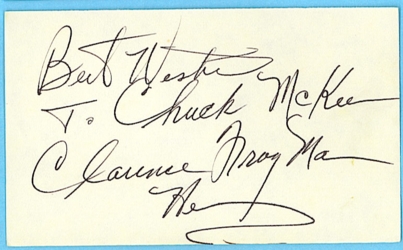 Best Wishes
To Chuck McKee
Clarence Frog Man
Henry